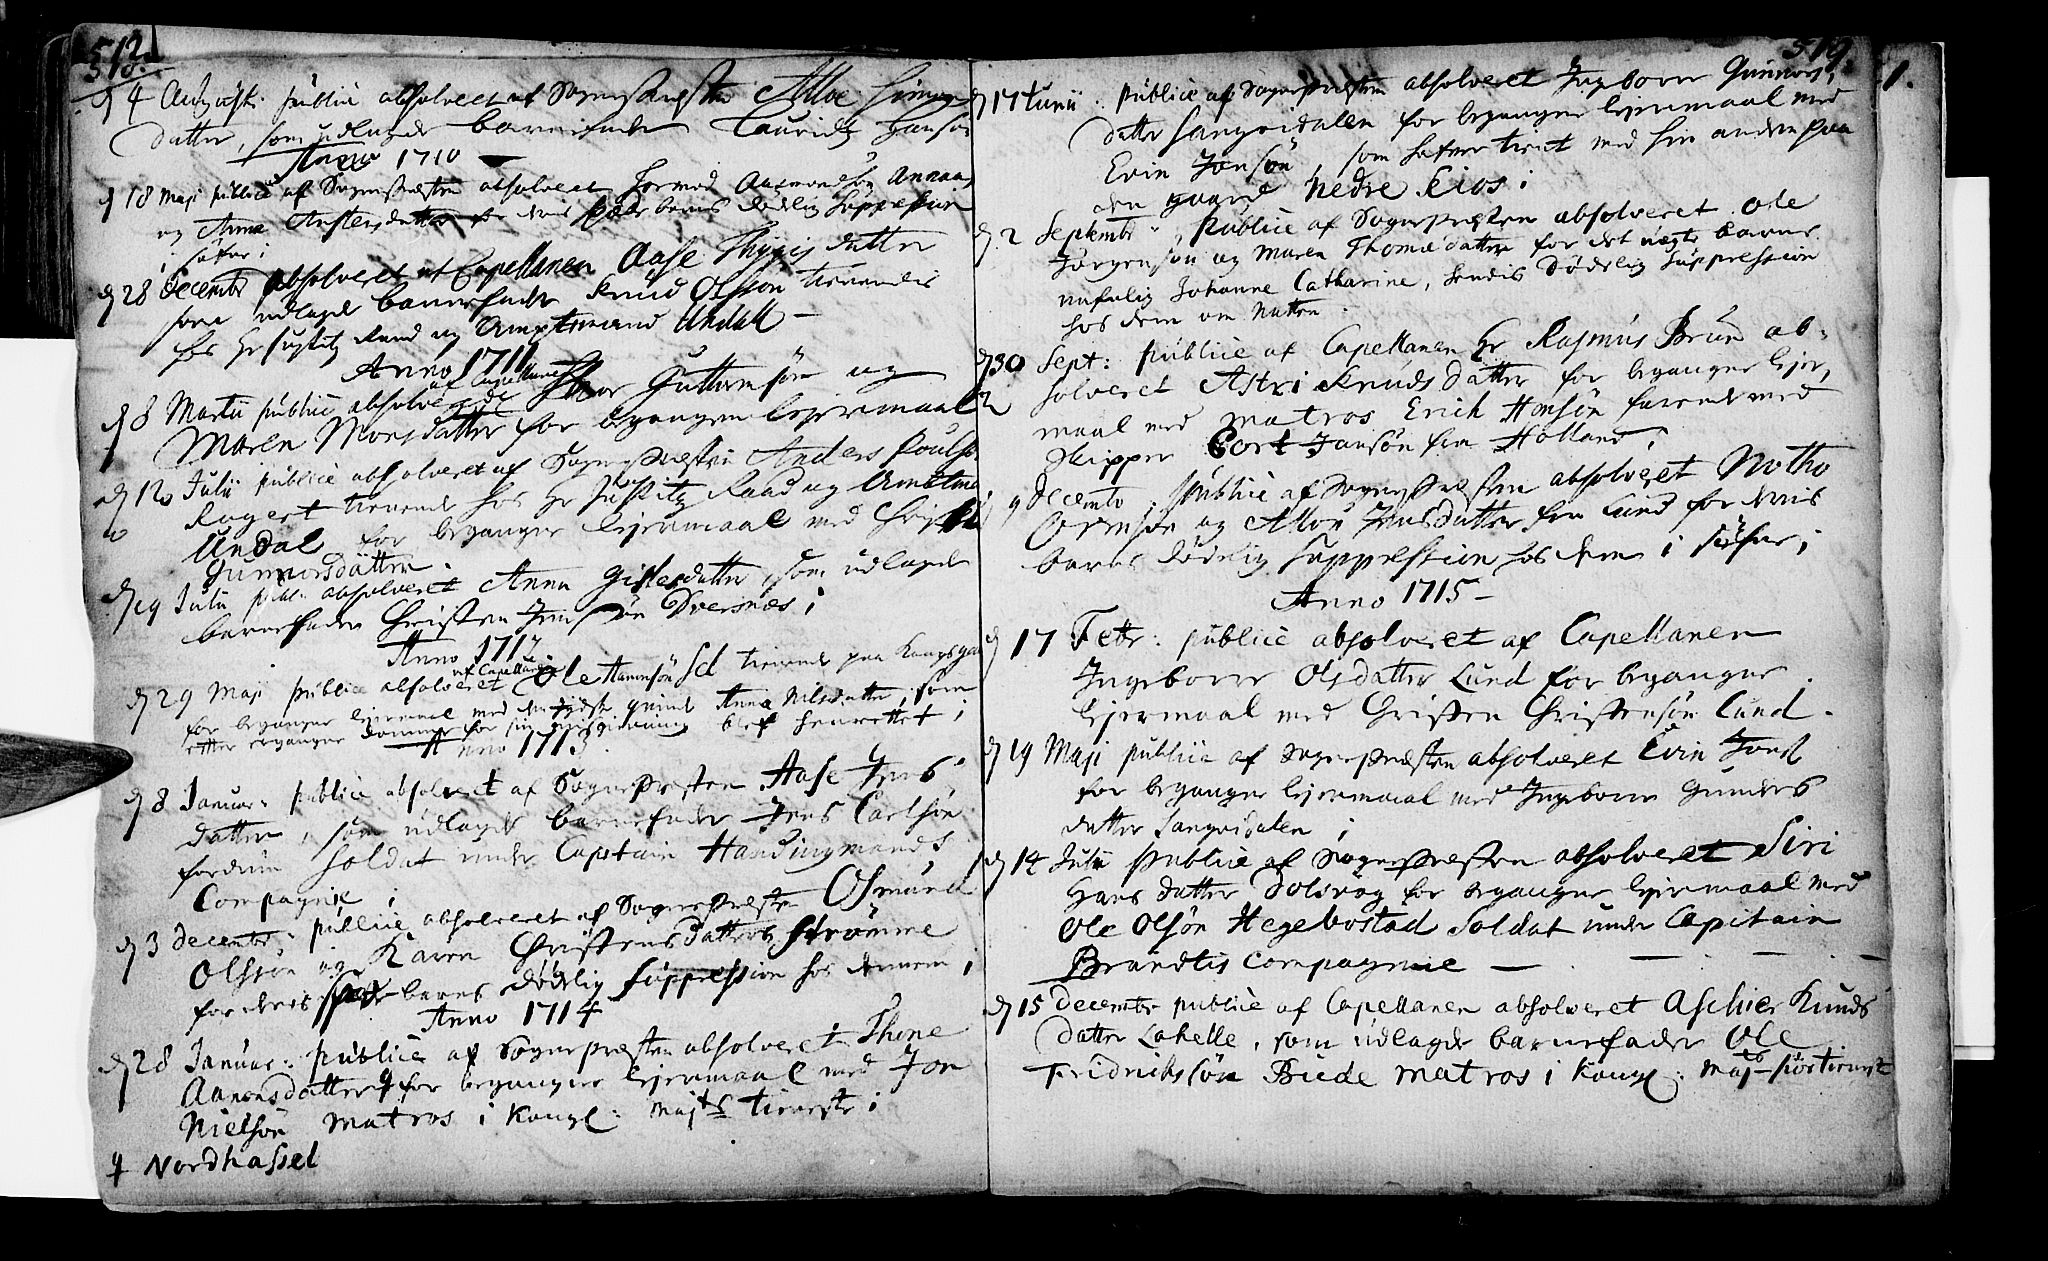 518.
d 4 August: publice absolveret af Sognepræsten Alloe Simens
datter, som udlagde barnefader Lauridz Hansøn
Anno 1710
d 18 Maji publice af Sognepræsten absolveret Aamondsøn
og Anna datter deris spæde barns dødelig suppression
i søfne;
d 28 Decembr absolveret af Capellanen Aase Thygis datter
som udlagde barnefader Knud Olssøn tienendes
hos Hr Justitz Raad og Amptmand Undall
Anno 1711
d 8 Martii publice absolveret af Capellanen Guttormsøn og
Maren Monsdatter for begangen leiermaal
d 12 Julii publice absolveret af Sognepræsten Anders Poulsøn
Rogert tienende hos Hr Justitz Raad og Amptmand
Undal for begangne leiermaal med
Gunnorsdatter.
d 19 Julii publ: absolveret Anna Gislesdatter, som udlagde
barnefader Christen Jensøn Dversnæs;
Anno 1712
d 29 Maji publice absolveret af Capellanen Ole tienende paa Kongsgaard
for begangne leiermaal med qvinde Anna Nilsdatter, som
efter ergangne domme for sin blef henrettet;
Anno 1713
d 8 Januar: publice absolveret af Sognepræsten Aase Jens
datter, som udlagde barnefader Jens Carlsøn
fordum soldat under Captain Haudingmands
Compagnie;
d 3 Decembr: publice absolveret af Sognepræsten Osmund
Olssøn og Karen Christens datter Strømme
for deris spæde barns dødelig suppression hos dennem;
Anno 1714
d 28 Januar: publice af Sognepræsten absolveret Thone
Aanonsdatter for begangne leiermaal med Jon
Nielsøn matros i Kongl: Majts tieneste;
Nordhassel
519.
1.
d 17 Junii: publice af Sognepræsten absolveret Ingborre Gunnors
datter Sangvidalen for begangne leiermaal med
Evin Jonsøn, som hafver tient med hin anden paa
den gaard Nedre Eios;
d. 2 Septembr: publice af Sognepræsten absolveret Ole
Jørgensøn og Maren Thomædatter for det ægte barns
nafnlig Johanne Catharine, hendis dødelig suppression
hos dem om natten.
d 30 Sept: publice af Capellanen Hr Rasmus Brun ab-
solveret Astri Knuds datter for begangne leier,
maal med matros Erich Hansøn farende med
skipper Cort Jansøn fra Holland;
9 Decembr, publice af Sognepræsten absolveret Notho
og Jensdatter fra Lund for deris
barns dødelig suppression hos dem i søfne;
Anno 1715
d 17 Febr: publice absolveret af Capellanen
Ingeborre Olsdatter Lund for begangne
leiermaal med Christen Christensøn Lund.
d 19 Maji publice af Sognepræsten absolveret Evin Jons:
for begangne leiermaal med Ingeborre Gunders
datter Sangvidalen;
d 14 Julii publice af Sognepræsten absolveret Siri
Hans datter Dolsvog for begangne leiermaal med
Ole Olsøn Hegebostad Soldat under Capitain
Brandtis Compagnie
d 15 Decembr publice af Capellanen absolveret Aschier Knuds
datter Lahelle, som udlagde barnefader Ole
Fridrikssøn Buede matros i Kongl: Majts